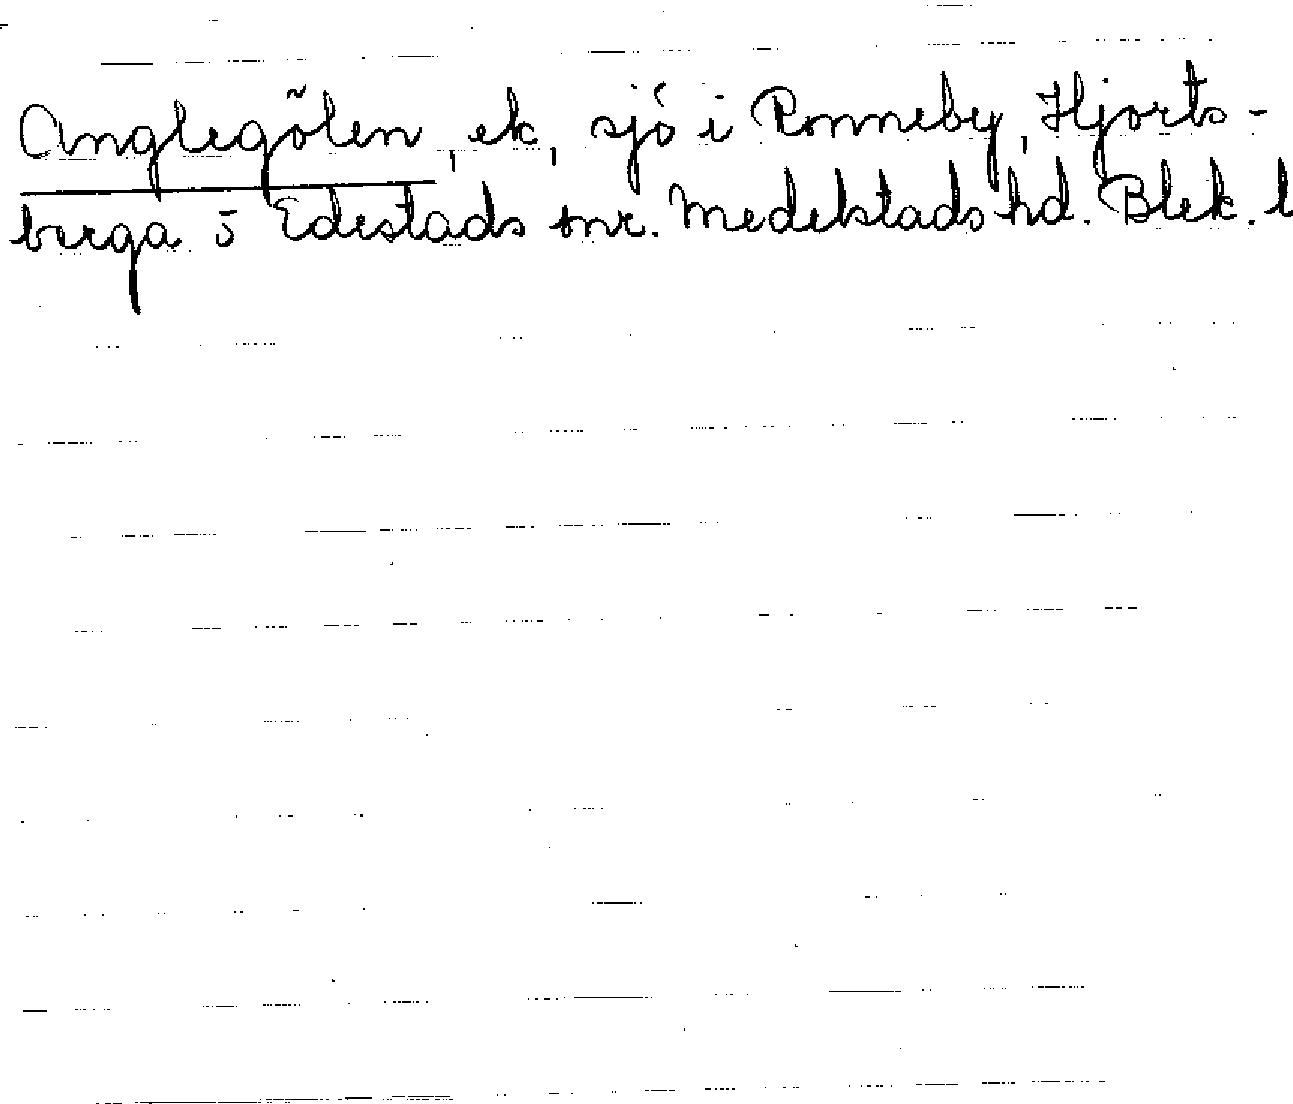 Anglegölen, ek, sjö i Ronneby, Hjorts-
berga 5 Edestads snr. Medelstads hd. Blek. l